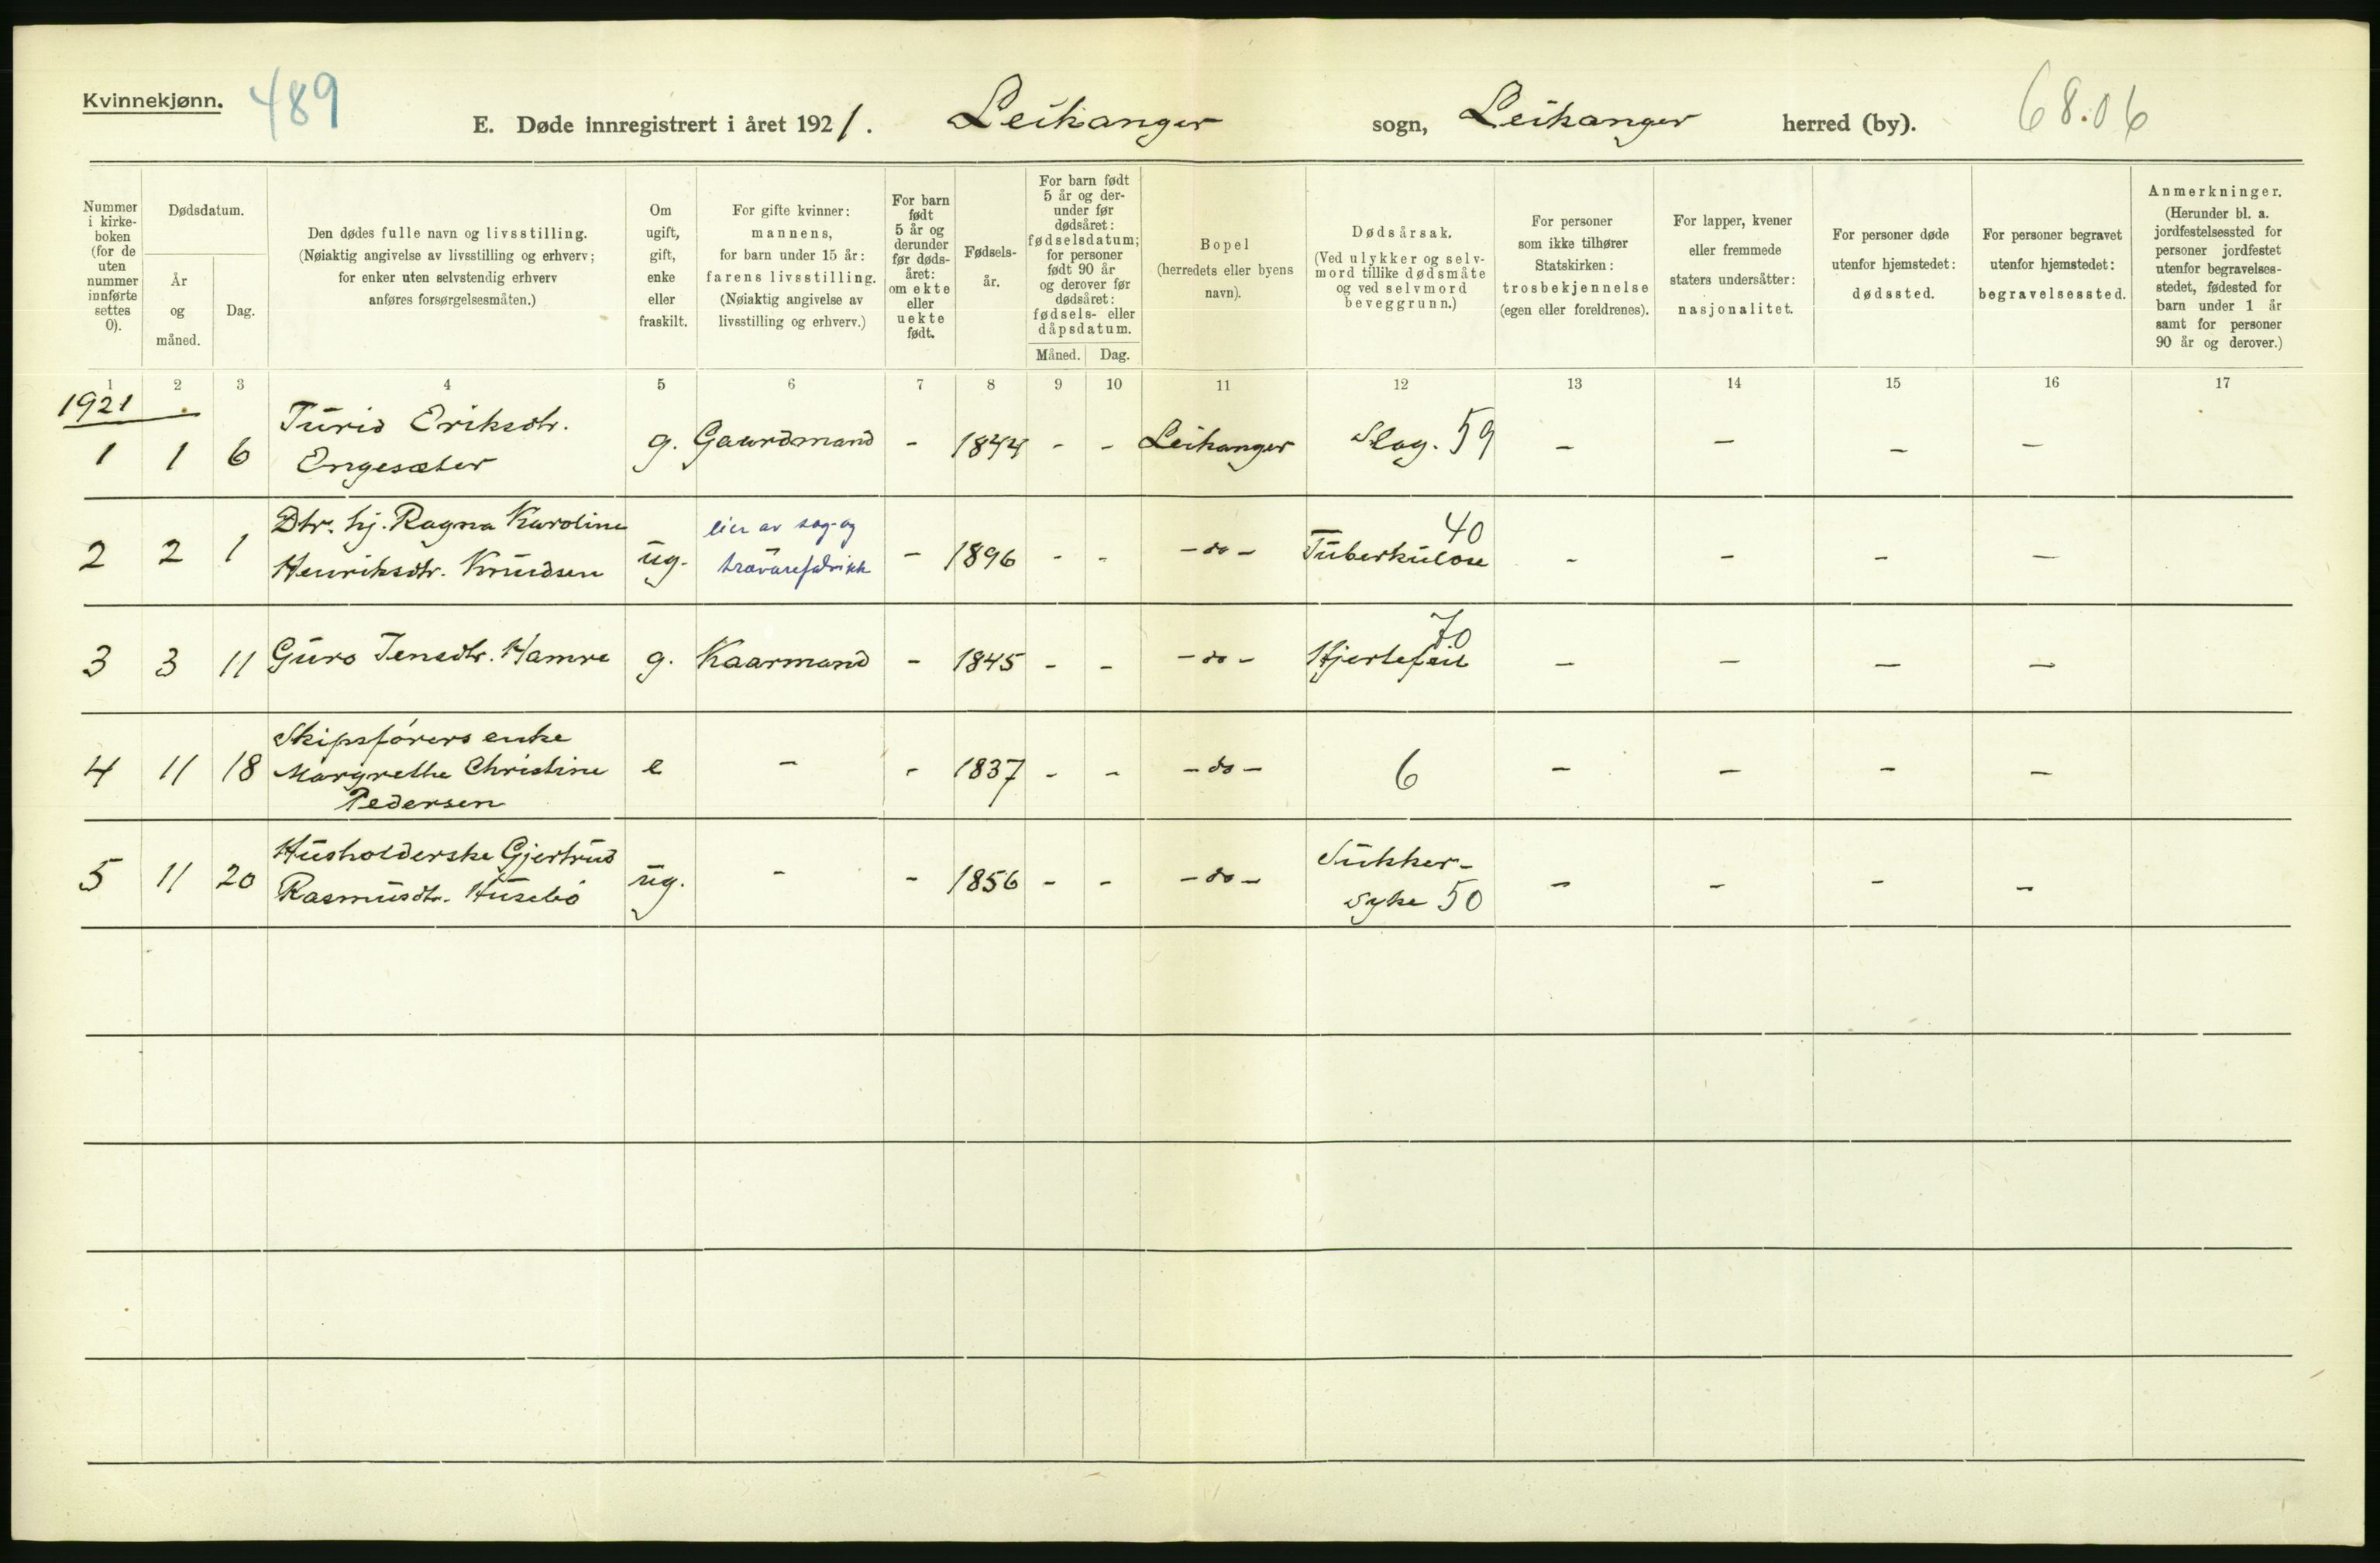 Kvinnekjønn.
489
E. Døde innregistrert i året 1921. Leikanger sogn, Leikanger herred (by). 68.06
Nummer i kirkeboken (for de uten nummer innførte settes 0).
Dødsdatum.
År og måned.
Dag.
Den dødes fulle navn og livsstilling.
(Nøiaktig angivelse av livsstilling og erhverv;
for enker uten selvstendig erhverv
anføres forsørgelsesmåten.)
Om
ugift,
gift,
enke
eller
fraskilt.
For gifte kvinner:
mannens,
for barn under 15 år:
farens livsstilling.
(Nøiaktig angivelse av
livsstilling og erhverv.)
For barn
født
5 år og
derunder
før døds-
året:
om ekte
eller
uekte
født.
Fødsels-
år.
For barn født
5 år og der-
under før
dødsåret:
fødselsdatum;
for personer
født 90 år
og derover før
dødsåret:
fødsels- eller
dåpsdatum.
Måned. Dag.
Bopel
(herredets eller byens
navn).
Dødsårsak.
(Ved ulykker og selv-
mord tillike dødsmåte
og ved selvmord
beveggrunn.)
For personer
som ikke tilhører
Statskirken:
trosbekjennelse
(egen eller foreldrenes).
For lapper, kvener
eller fremmede
staters undersåtter:
nasjonalitet.
For personer døde
utenfor hjemstedet:
dødssted.
For personer begravet
utenfor hjemstedet:
begravelsessted.
Anmerkninger.
(Herunder bl. a.
jordfestelsessted for
personer jordfestet
utenfor begravelses-
stedet, fødested for
barn under 1 år
samt for personer
90 år og derover.)
1 2 3 4 5 6 7 8 9 10 11 12 13 14 15 16 17
1921
1 1 6 Turid Eriksdtr.
Engesæter g. Gaardmand - 1844 - - Leikanger Slag. 59 - - - -
2 2 1 Dtr. hj. Ragna Karoline
Henriksdtr. Knudsen ug. eier av sag- og
trævarefabrikk - 1896 - - -do- 40
Tuberkulose - - - -
3 3 11 Guro Jensdtr. Hamre g. Kaarmand - 1845 - - -do- 70
Hjertefeil - - - -
4 11 18 Skipsførers enke
Margrethe Christine
Pedersen e - - 1837 - - -do- 6 - - - -
5 11 20 Husholderske Gjertrud
Rasmusdtr. Husebø ug. - - 1856 - - -do- Sukker-
syke 50 - - - -